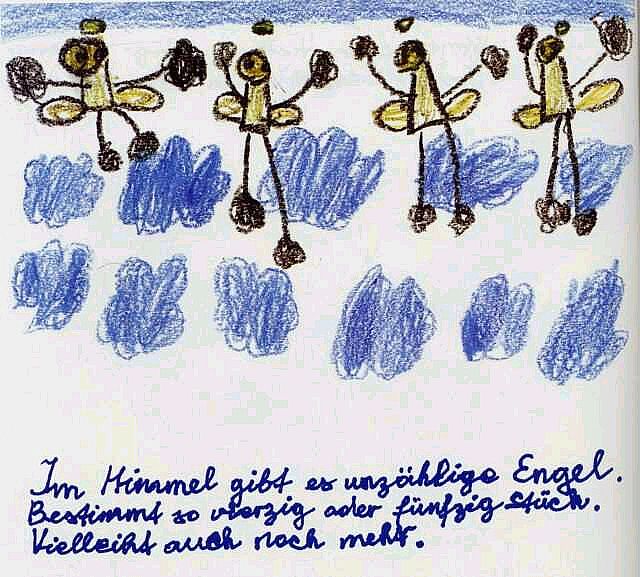 Im Himmel gibt es unzählige Engel.
Bestimmt so vierzig oder fünfzig stück.
Vielleiht auch noch mehr.